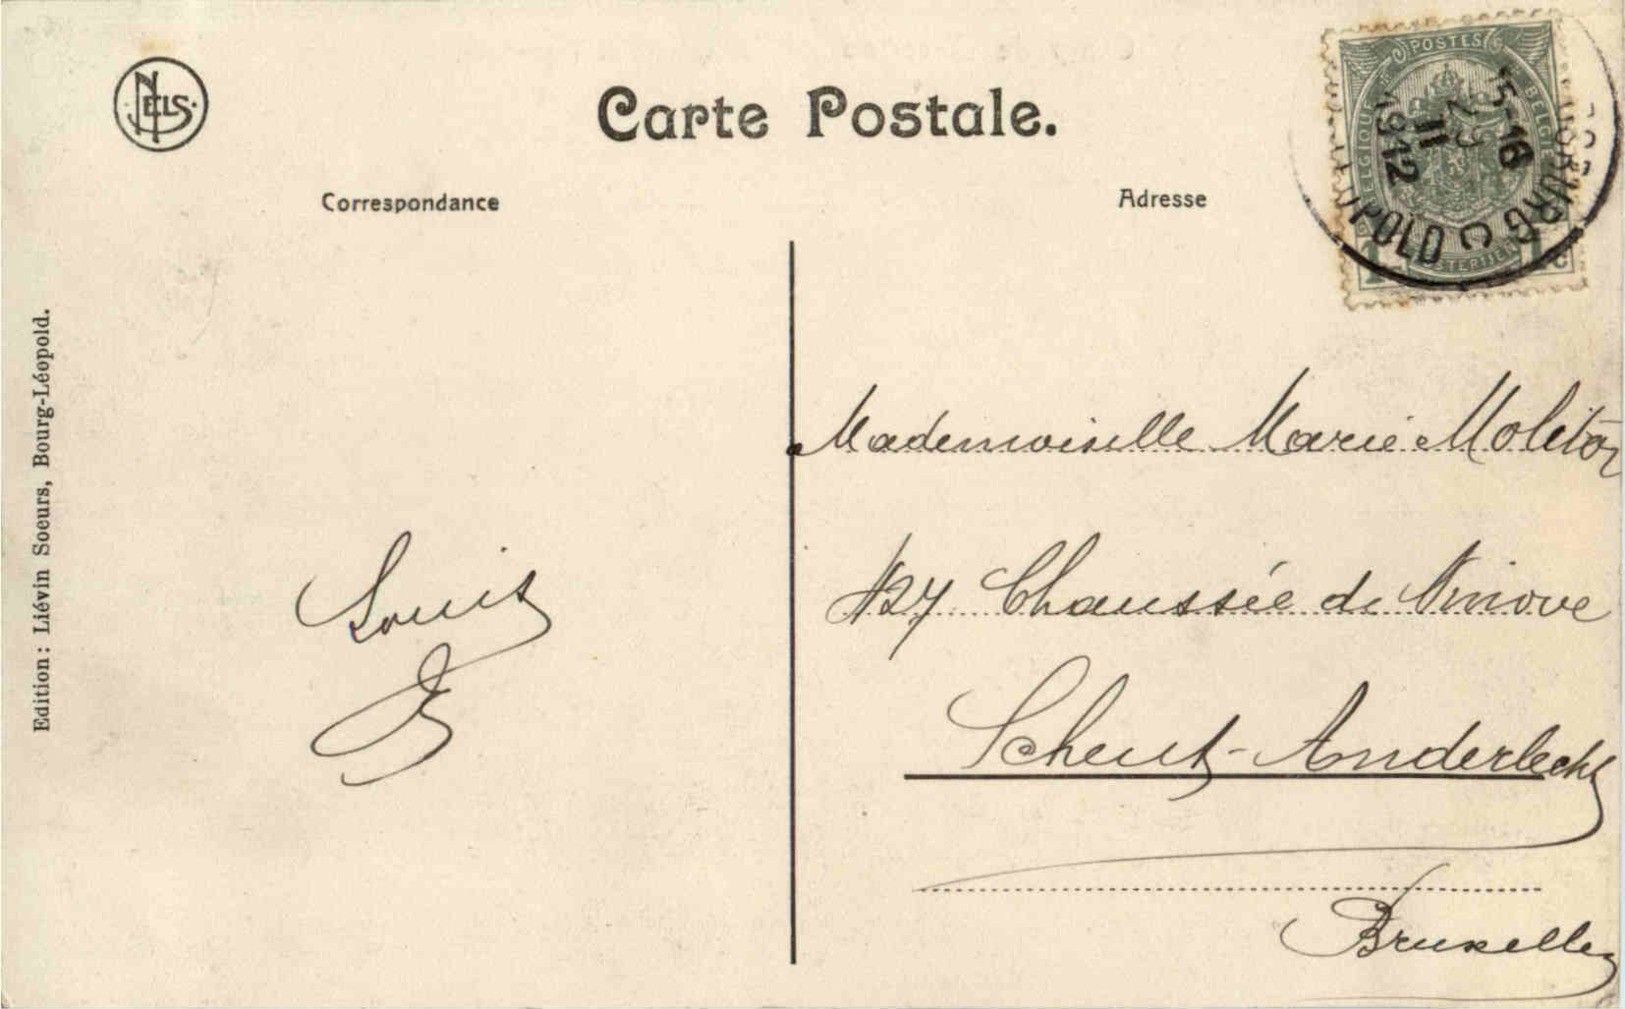 NELS
Carte Postale.
Correspondance
Adresse
POSTES
BELGIQUE
BELGIË
15-16
29
11
1912
BOURG
LÉOPOLD
Edition: Liévin Soeurs, Bourg-Léopold.
Louis
Mademoiselle Marie Molitor
427 Chaussée de Ninove
Scheut-Anderlecht
Bruxelles